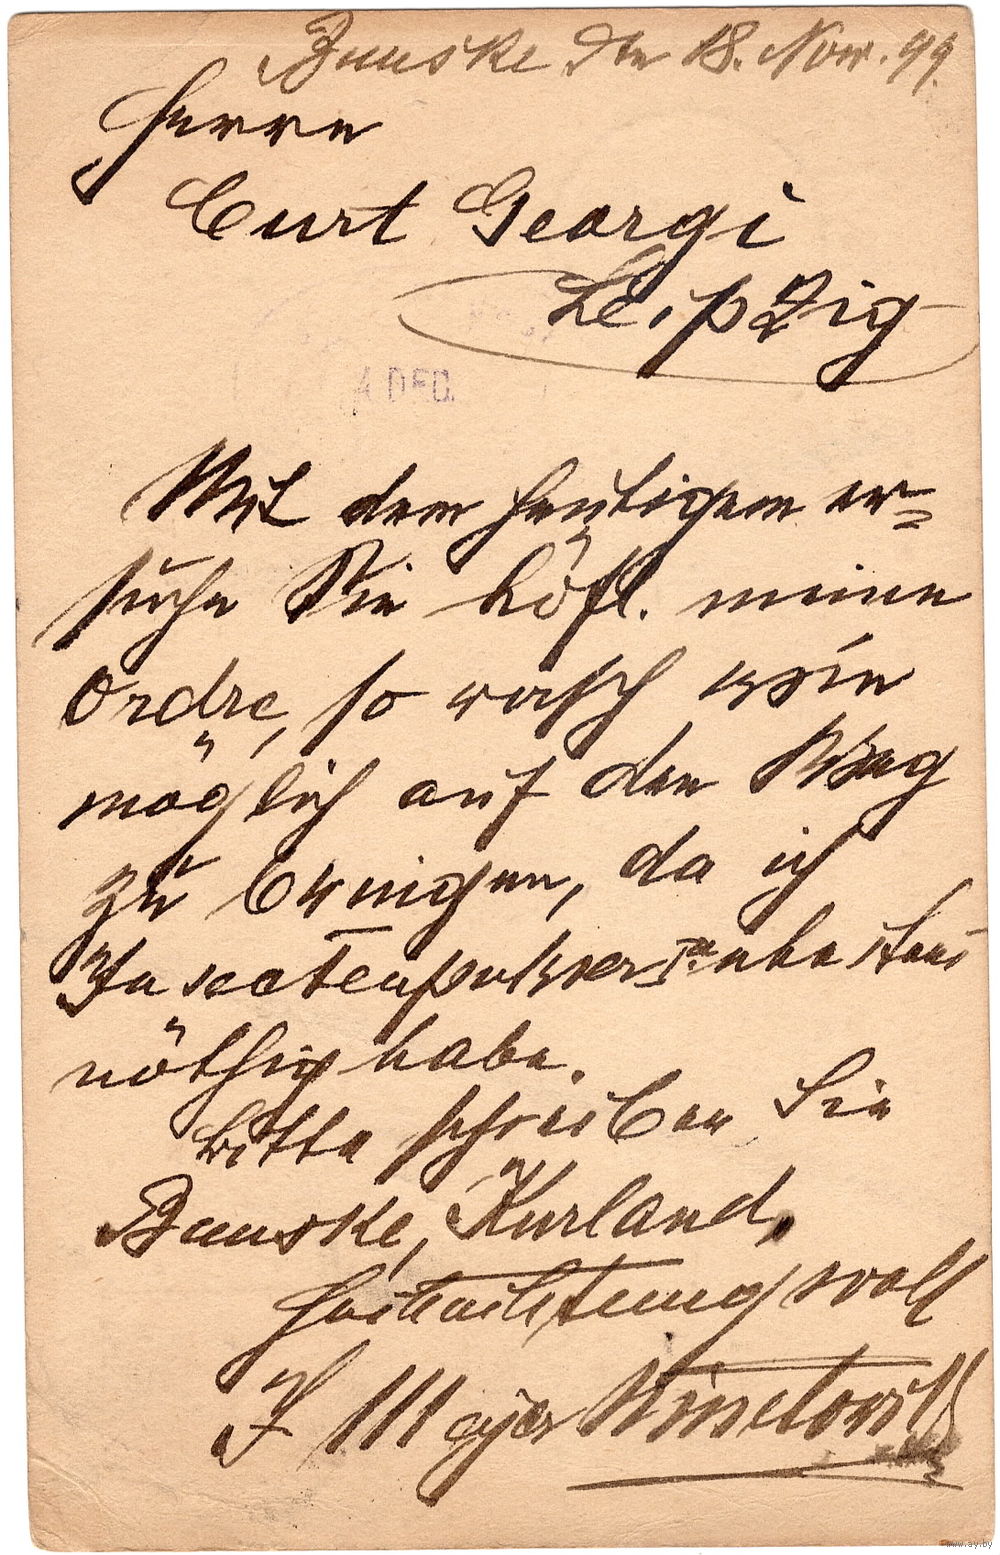 Bauske den 18. Nov. 99.
Herrn
Curt Georgi
Leipzig
4 DEC.
Mit dem heutigem er=
suche Sie höfl. meine
Ordre, so rasch wie
möglich auf den Weg
zu bringen, da ich
Insectenpulver Ia
nöthig habe.
Bitte schreiben Sie
Bauske, Kurland,
Hochachtungsvoll
Meyer
www.ay.by